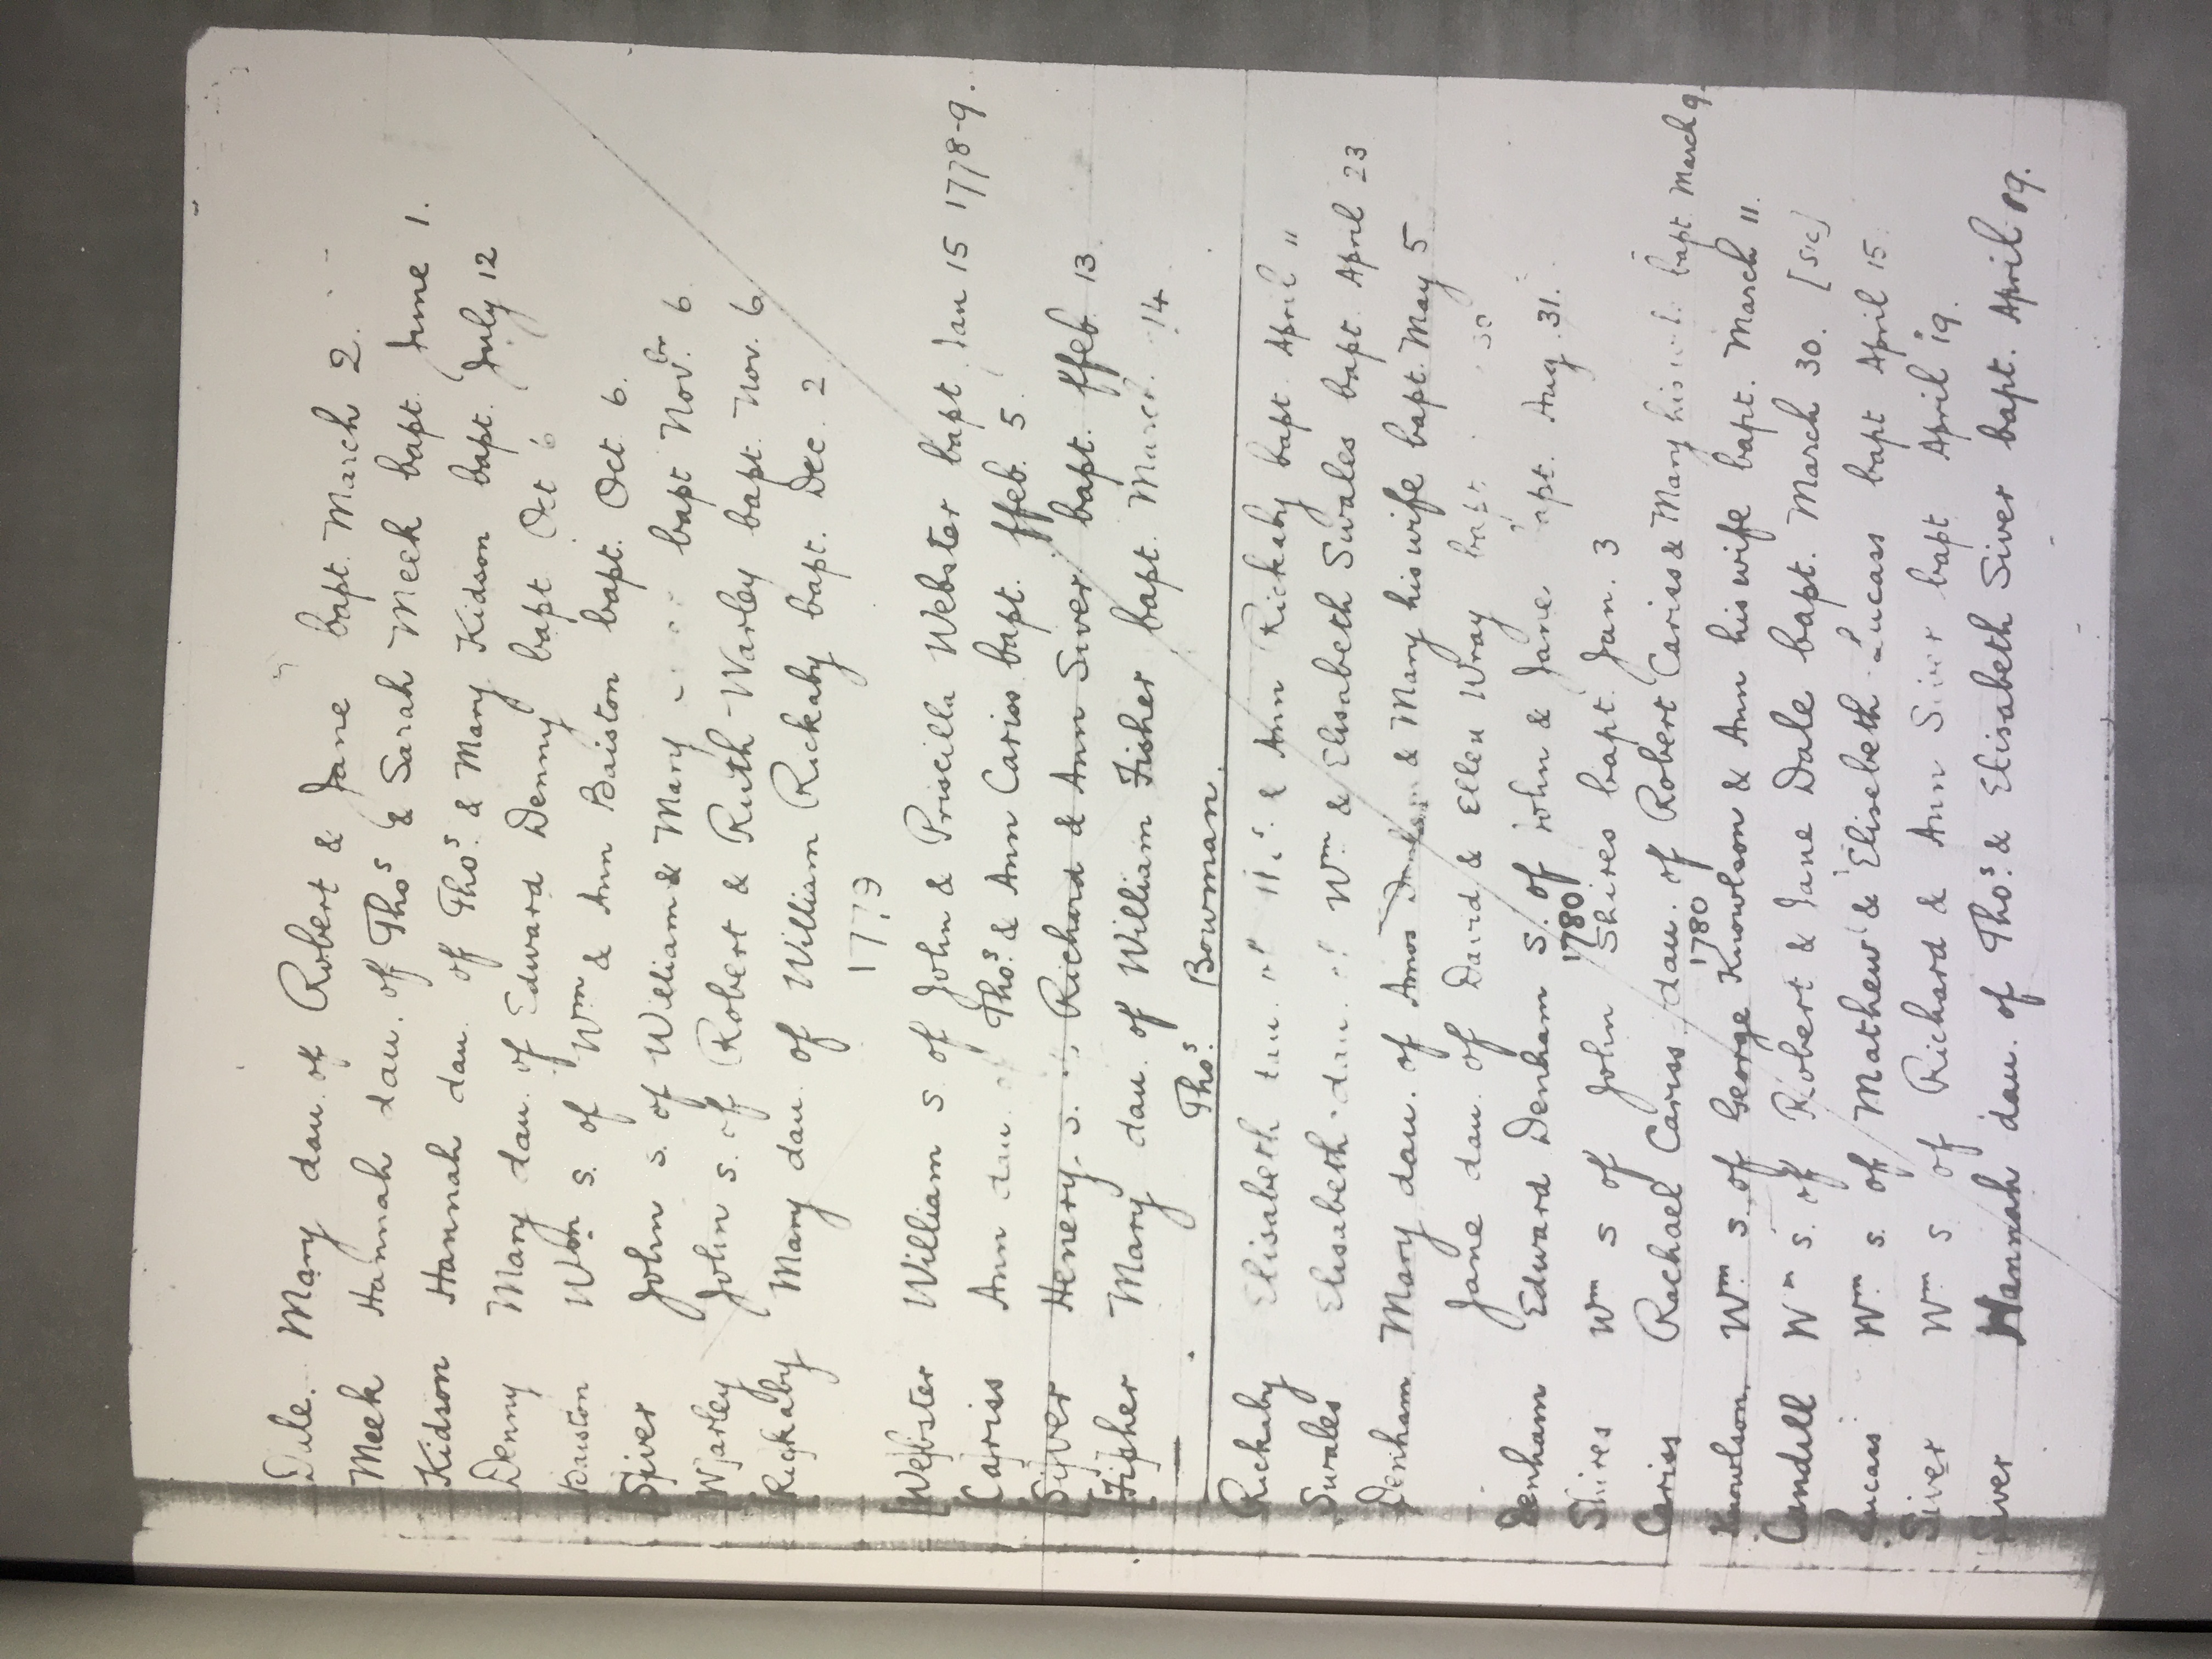 Dale. Mary dau. of Robert & Jane bapt. March 2.
Meek Hannah dau. of Thos & Sarah Meek bapt. June 1.
Kidson Hannah dau. of Thos. & Mary Kidson bapt. July 12
Denny Mary dau. of Edward Denny bapt Oct 6
Baiston Wm s. of Wm & Ann Baiston bapt. Oct 6.
Spiver John s. of William & Mary bapt Novbr. 6
Warley John s. of Robert & Ruth Warley bapt. Nov. 6
Rickaby Mary dau. of William Rickaby bapt. Dec. 2
1779
Webster William s. of John & Priscilla Webster bapt Jan 15 1778-9.
Cariss Ann dau of Thos. & Ann Cariss bapt. ffeb. 5.
Siver Henery s. of Richard & Ann Siver bapt. ffeb. 13.
Fisher Mary dau. of William Fisher bapt. March 14
Thos. Bowman.
Rickaby Elisabeth dau of & Ann Rickaby bapt. April "
Swales Elisabeth dau of Wm & Elisabeth Swales bapt. April 23
Denham Mary dau. of Amos Denham & Mary his wife bapt. May 5
Jane dau. of David & Ellen Wray bapt. 30
Denham Edward Denham s. of John & Jane bapt. Aug. 31.
1780
Shires Wm s of John Shires bapt. Jan. 3
Cariss Rachael Cariss dau. of Robert Cariss & Mary his wife bapt. March 9.
1780
Knowlson Wm s. of George Knowlson & Ann his wife bapt. March 11.
Candill Wm s. of Robert & Jane Dale bapt. March 30. [sic]
Lucass Wm s. of Mathew & Elisebeth Lucass bapt April 15.
Siver Wm s of Richard & Ann Siver bapt April 19.
Siver Hannah dau. of Thos. & Elisabeth Siver bapt. April 19.